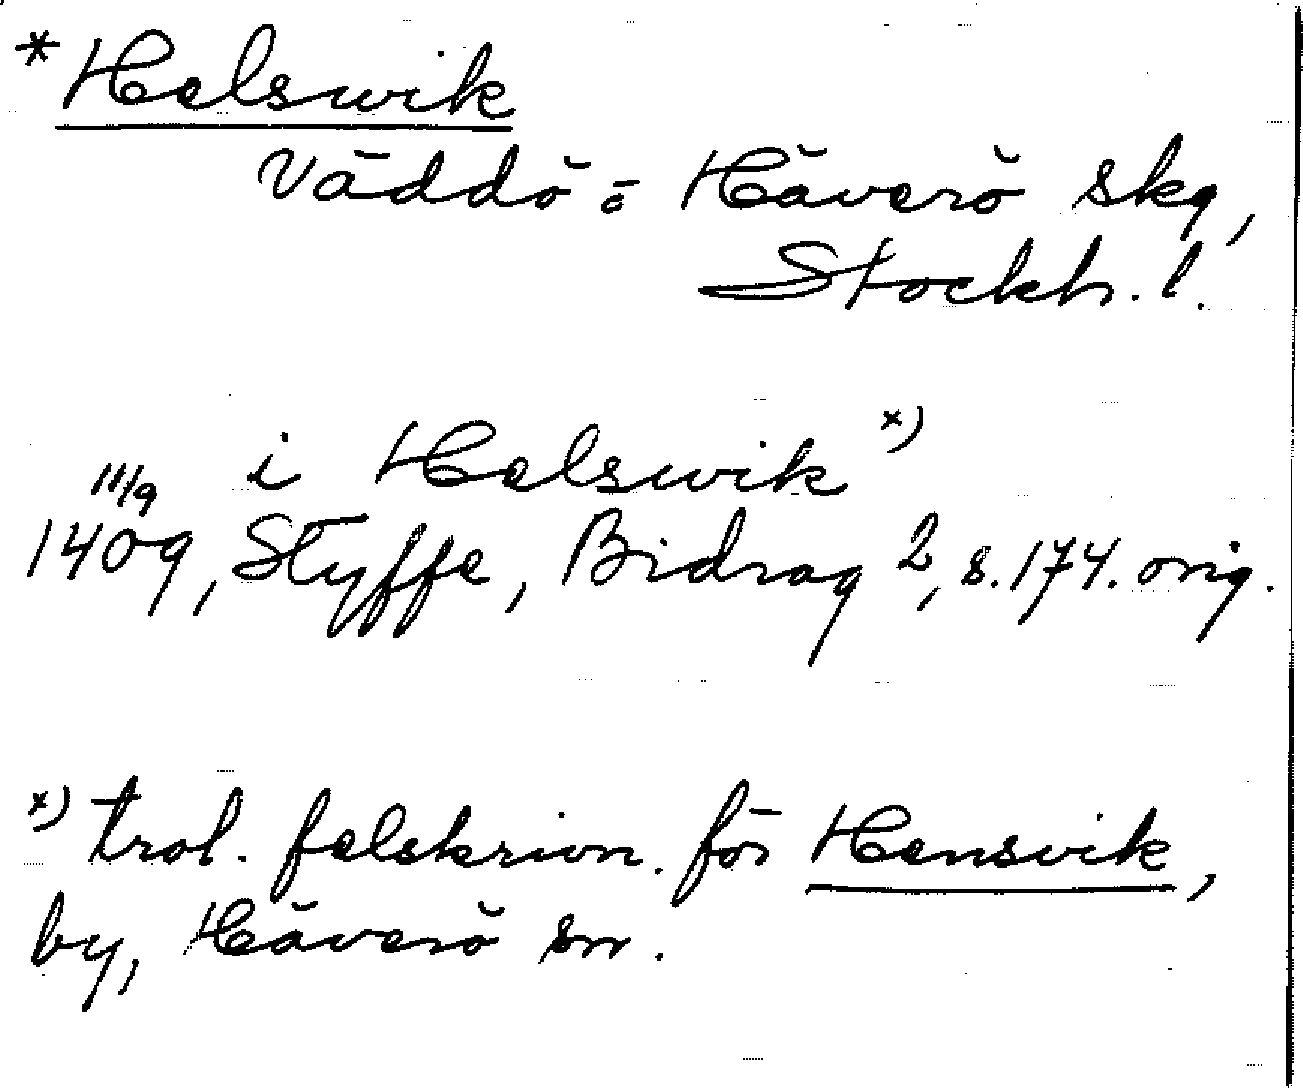 *Helswik
Väddö o Häverö skg,
Stockh. l.
i Helswik x)
11/9
1409, Styffe, Bidrag 2, s. 174. orig.
x) trol. felskrivn. för Hensvik,
by, Häverö sn.